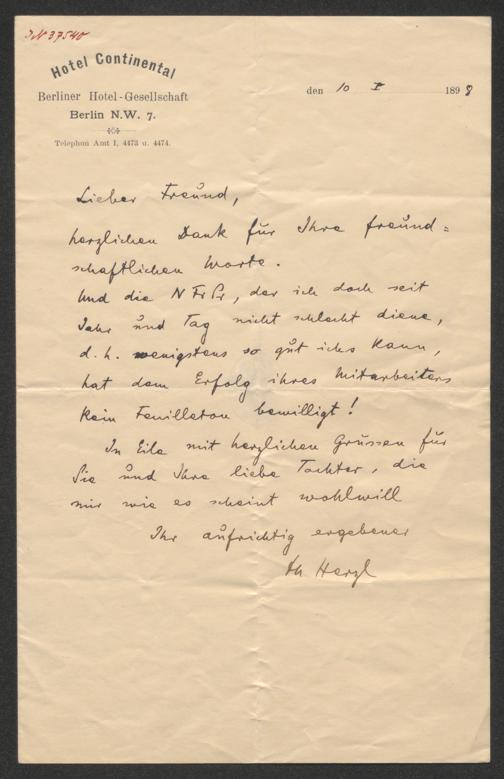 IN 37540
Hotel Continental
Berliner Hotel-Gesellschaft
Berlin N.W. 7.
Telephon Amt I, 4473 u. 4474.
den 10 I 1898
Lieber Freund,
herzlichen Dank für Ihre freund=
schaftlichen Worte.
Und die N Fr Pr, der ich doch seit
Jahr und Tag nicht schlecht diene,
d. h. wenigstens so gut ichs kann,
hat dem Erfolg ihres Mitarbeiters
kein Feuilleton bewilligt!
In Eile mit herzlichen Grüssen für
Sie und Ihre liebe Tochter, die
mir wie es scheint wohlwill
Ihr aufrichtig ergebener
Th Herzl